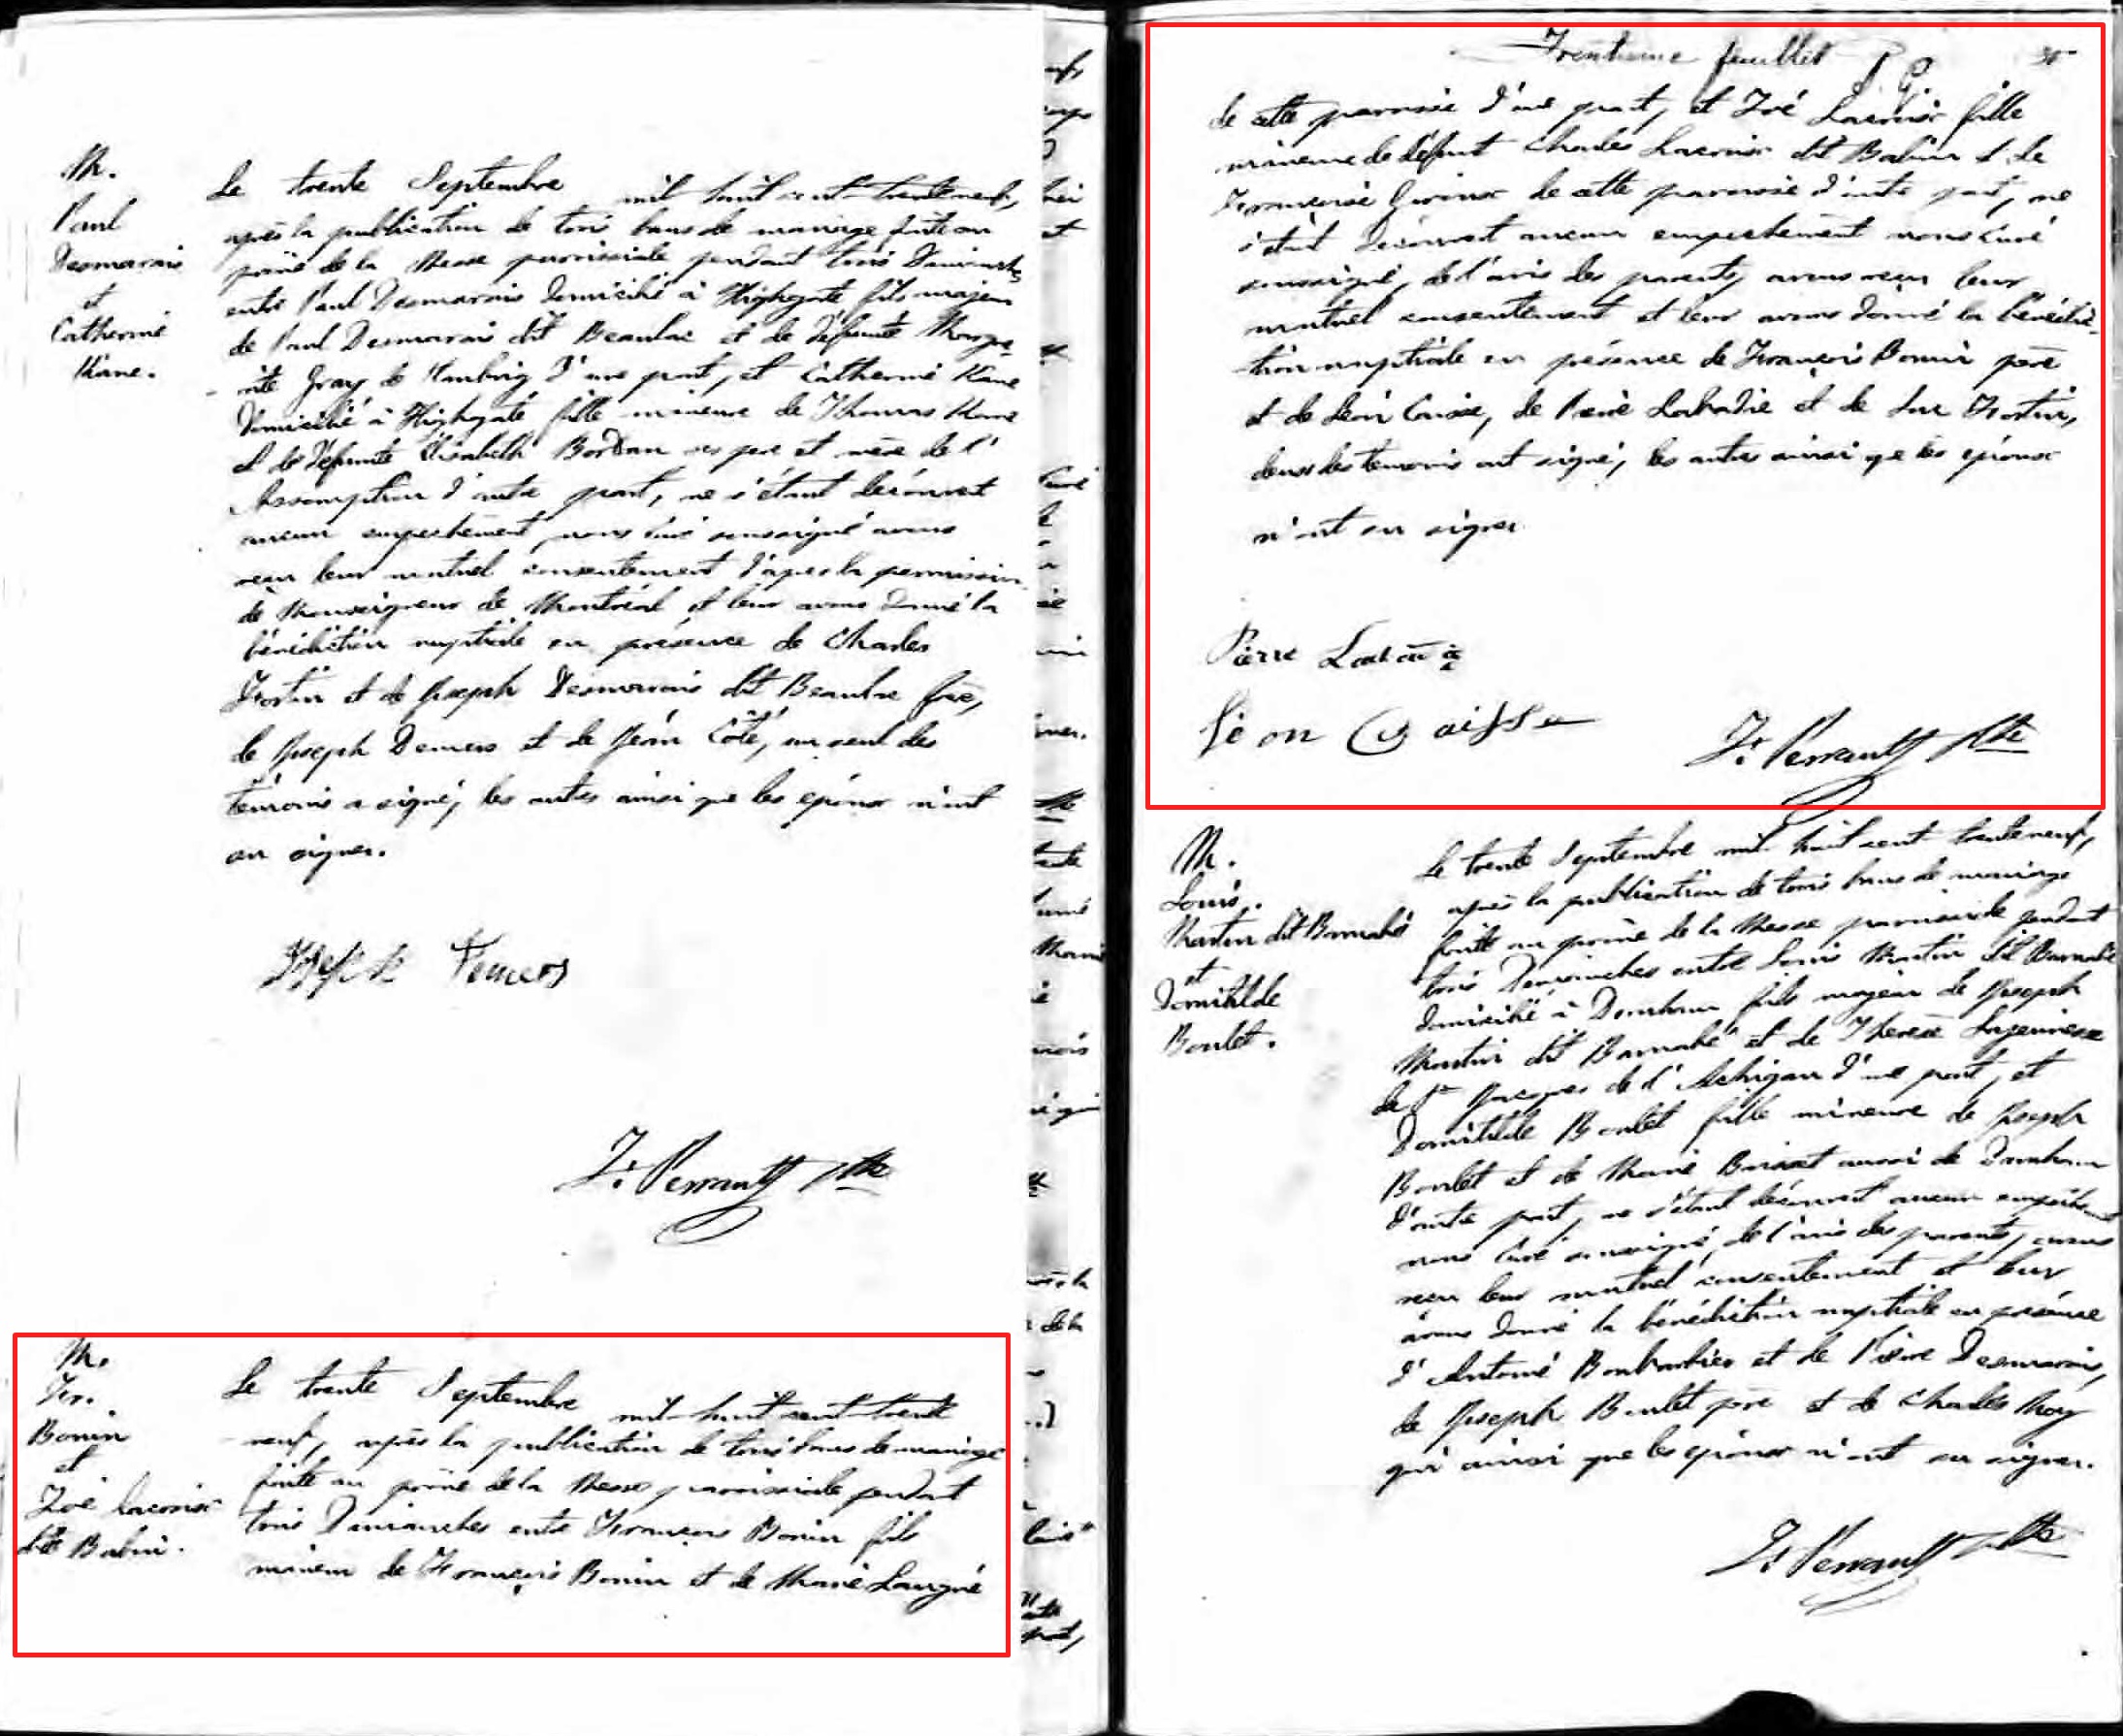 M.
Paul
Desmarais
et
Catherine
Kane.
Le trente Septembre mil huit cent trenteneuf,
après la publication de trois bans de mariage faite au
prône de la Messe paroissiale pendant trois Dimanches
entre Paul Desmarais domicilié à Highgate fils majeur
de Paul Desmarais dit Beaulac et de défunte Margue-
rite Gray de d'une part, et Catherine Kane
domicilié à Highgate fille mineure de Thomas Kane
et de défunte Elisabeth ses père et mère de l'
Assomption d'autre part, ne s'étant découvert
aucun empêchement nous Curé soussigné avons
reçu leur mutuel consentement d'après la permission
de Monseigneur de Montréal et leur avons donné la
bénédiction nuptiale en présence de Charles
Fortin et de Joseph Desmarais dit Beaulac frère,
de Joseph Demers et de Jean Côté, un seul des
témoins a signé, les autres ainsi que les époux n'ont
su signer.
Joseph Demers
F: Perrault Ptre
M.
Fr.
Bonin
et
Zoé Lacroix
dite Babin.
Le trente Septembre mil huit cent trente
neuf, après la publication de trois bans de mariage
faite au prône de la Messe paroissiale pendant
trois Dimanches entre François Bonin fils
mineur de François Bonin et de Marie
Trentieme feuillet 30
de cette paroisse d'une part, et Zoé Lacroix fille
mineure de défunt Charles Lacroix dit Babin et de
Françoise Giroux de cette paroisse d'autre part, ne
s'étant découvert aucun empêchement nous Curé
soussigné, de l'avis des parents, avons reçu leur
mutuel consentement et leur avons donné la bénédic-
tion nuptiale en présence de François Bonin père
et de Léon Caisse, de Pierre Labadie et de Luc Fortin,
deux des témoins ont signé, les autres ainsi que les époux
n'ont su signer
Pierre
Léon Caisse
F: Perrault Ptre
M.
Louis
Martin dit Barnabé
et
Domitilde
Boulet.
Le trente Septembre mil huit cent trenteneuf,
après la publication de trois bans de mariage
faite au prône de la Messe paroissiale pendant
trois Dimanches entre Louis Martin dit Barnabé
domicilié à Dunham fils majeur de Joseph
Martin dit Barnabé et de Therese Lajeunesse
de St Jacques de l'Achigan d'une part, et
Domitilde Boulet fille mineure de Joseph
Boulet et de Marie aussi de Dunham
d'autre part, ne s'étant découvert aucun empêchement
nous Curé soussigné, de l'avis des parents, avons
reçu leur mutuel consentement et leur
avons donné la bénédiction nuptiale en présence
d'Antoine et de Pierre Desmarais,
de Joseph Boulet père et de Charles Roy
qui ainsi que les époux n'ont su signer.
F: Perrault Ptre